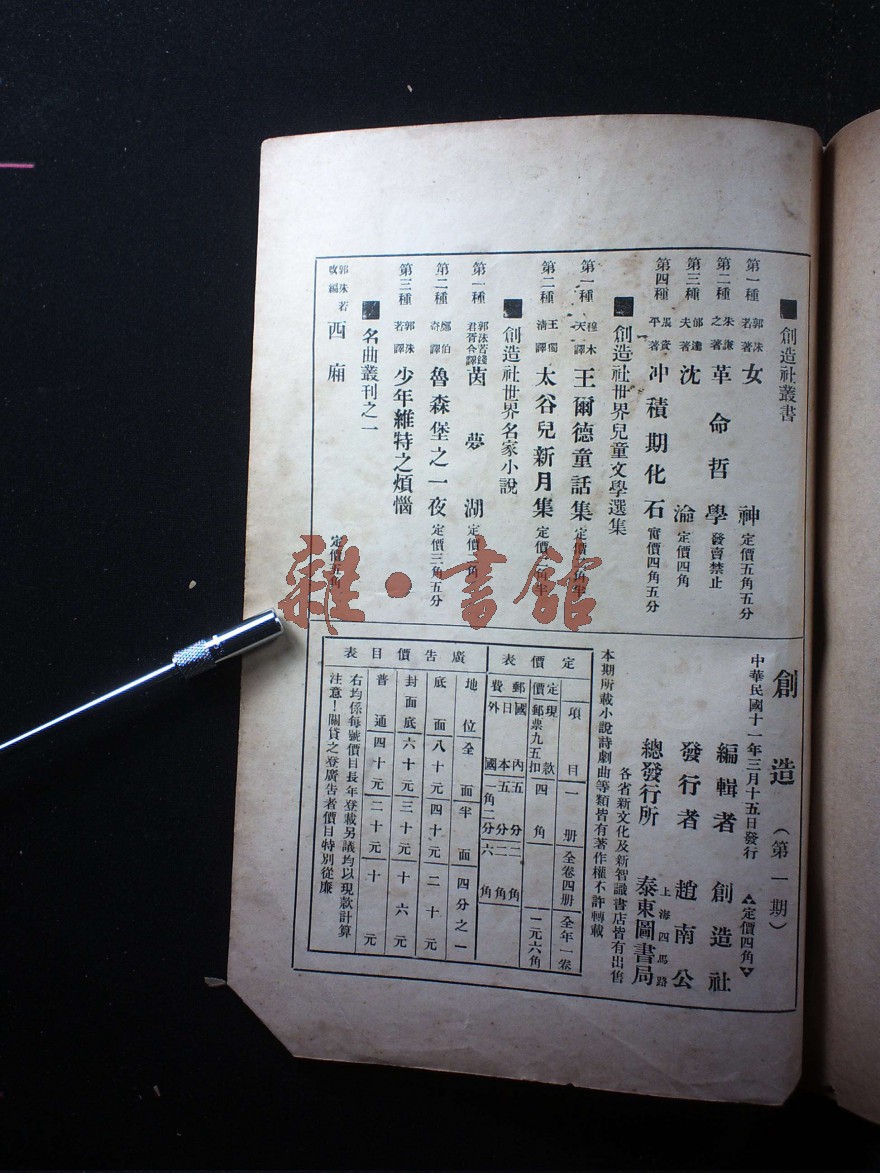 ■ 創造社叢書
第一種 郭沫若著 女神 定價五角五分
第二種 朱謙之著 革命哲學 發賣禁止
第三種 郁達夫著 沈淪 定價四角
第四種 張資平著 冲積期化石 實價四角五分
■ 創造社世界兒童文學選集
第一種 穆木天譯 王爾德童話集
第二種 王獨清譯 太谷兒新月集
■ 創造社世界名家小說
第一種 郭沫若錢君胥合譯 茵夢湖
第二種 鄭伯奇譯 魯森堡之一夜 定價三角五分
第三種 郭沫若譯 少年維特之煩惱
■ 名曲叢刊之一
郭沫若改編 西廂 定價五角
創造（第一期）
中華民國十一年三月十五日發行 定價四角
編輯者 創造社
發行者 趙南公
總發行所 上海四馬路 泰東圖書局
各省新文化及新智識書店皆有出售
本期所載小說詩劇曲等類皆有著作權不許轉載
定價表
項目 一冊 全卷四册 全年一卷
定價 現款 郵票九五扣 四角 一元六角
郵費 國內 日本 五分 二角
國外 一角二分 六角
廣告價目表
地位 全面 半面 四分之一
底面 八十元 四十元 二十元
封面底 六十元 三十元 十六元
普通 四十元 二十元 十元
右均係每號價目長年登載另議均以現款計算
注意！關貸之登廣告者價目特別從廉
雜·書館